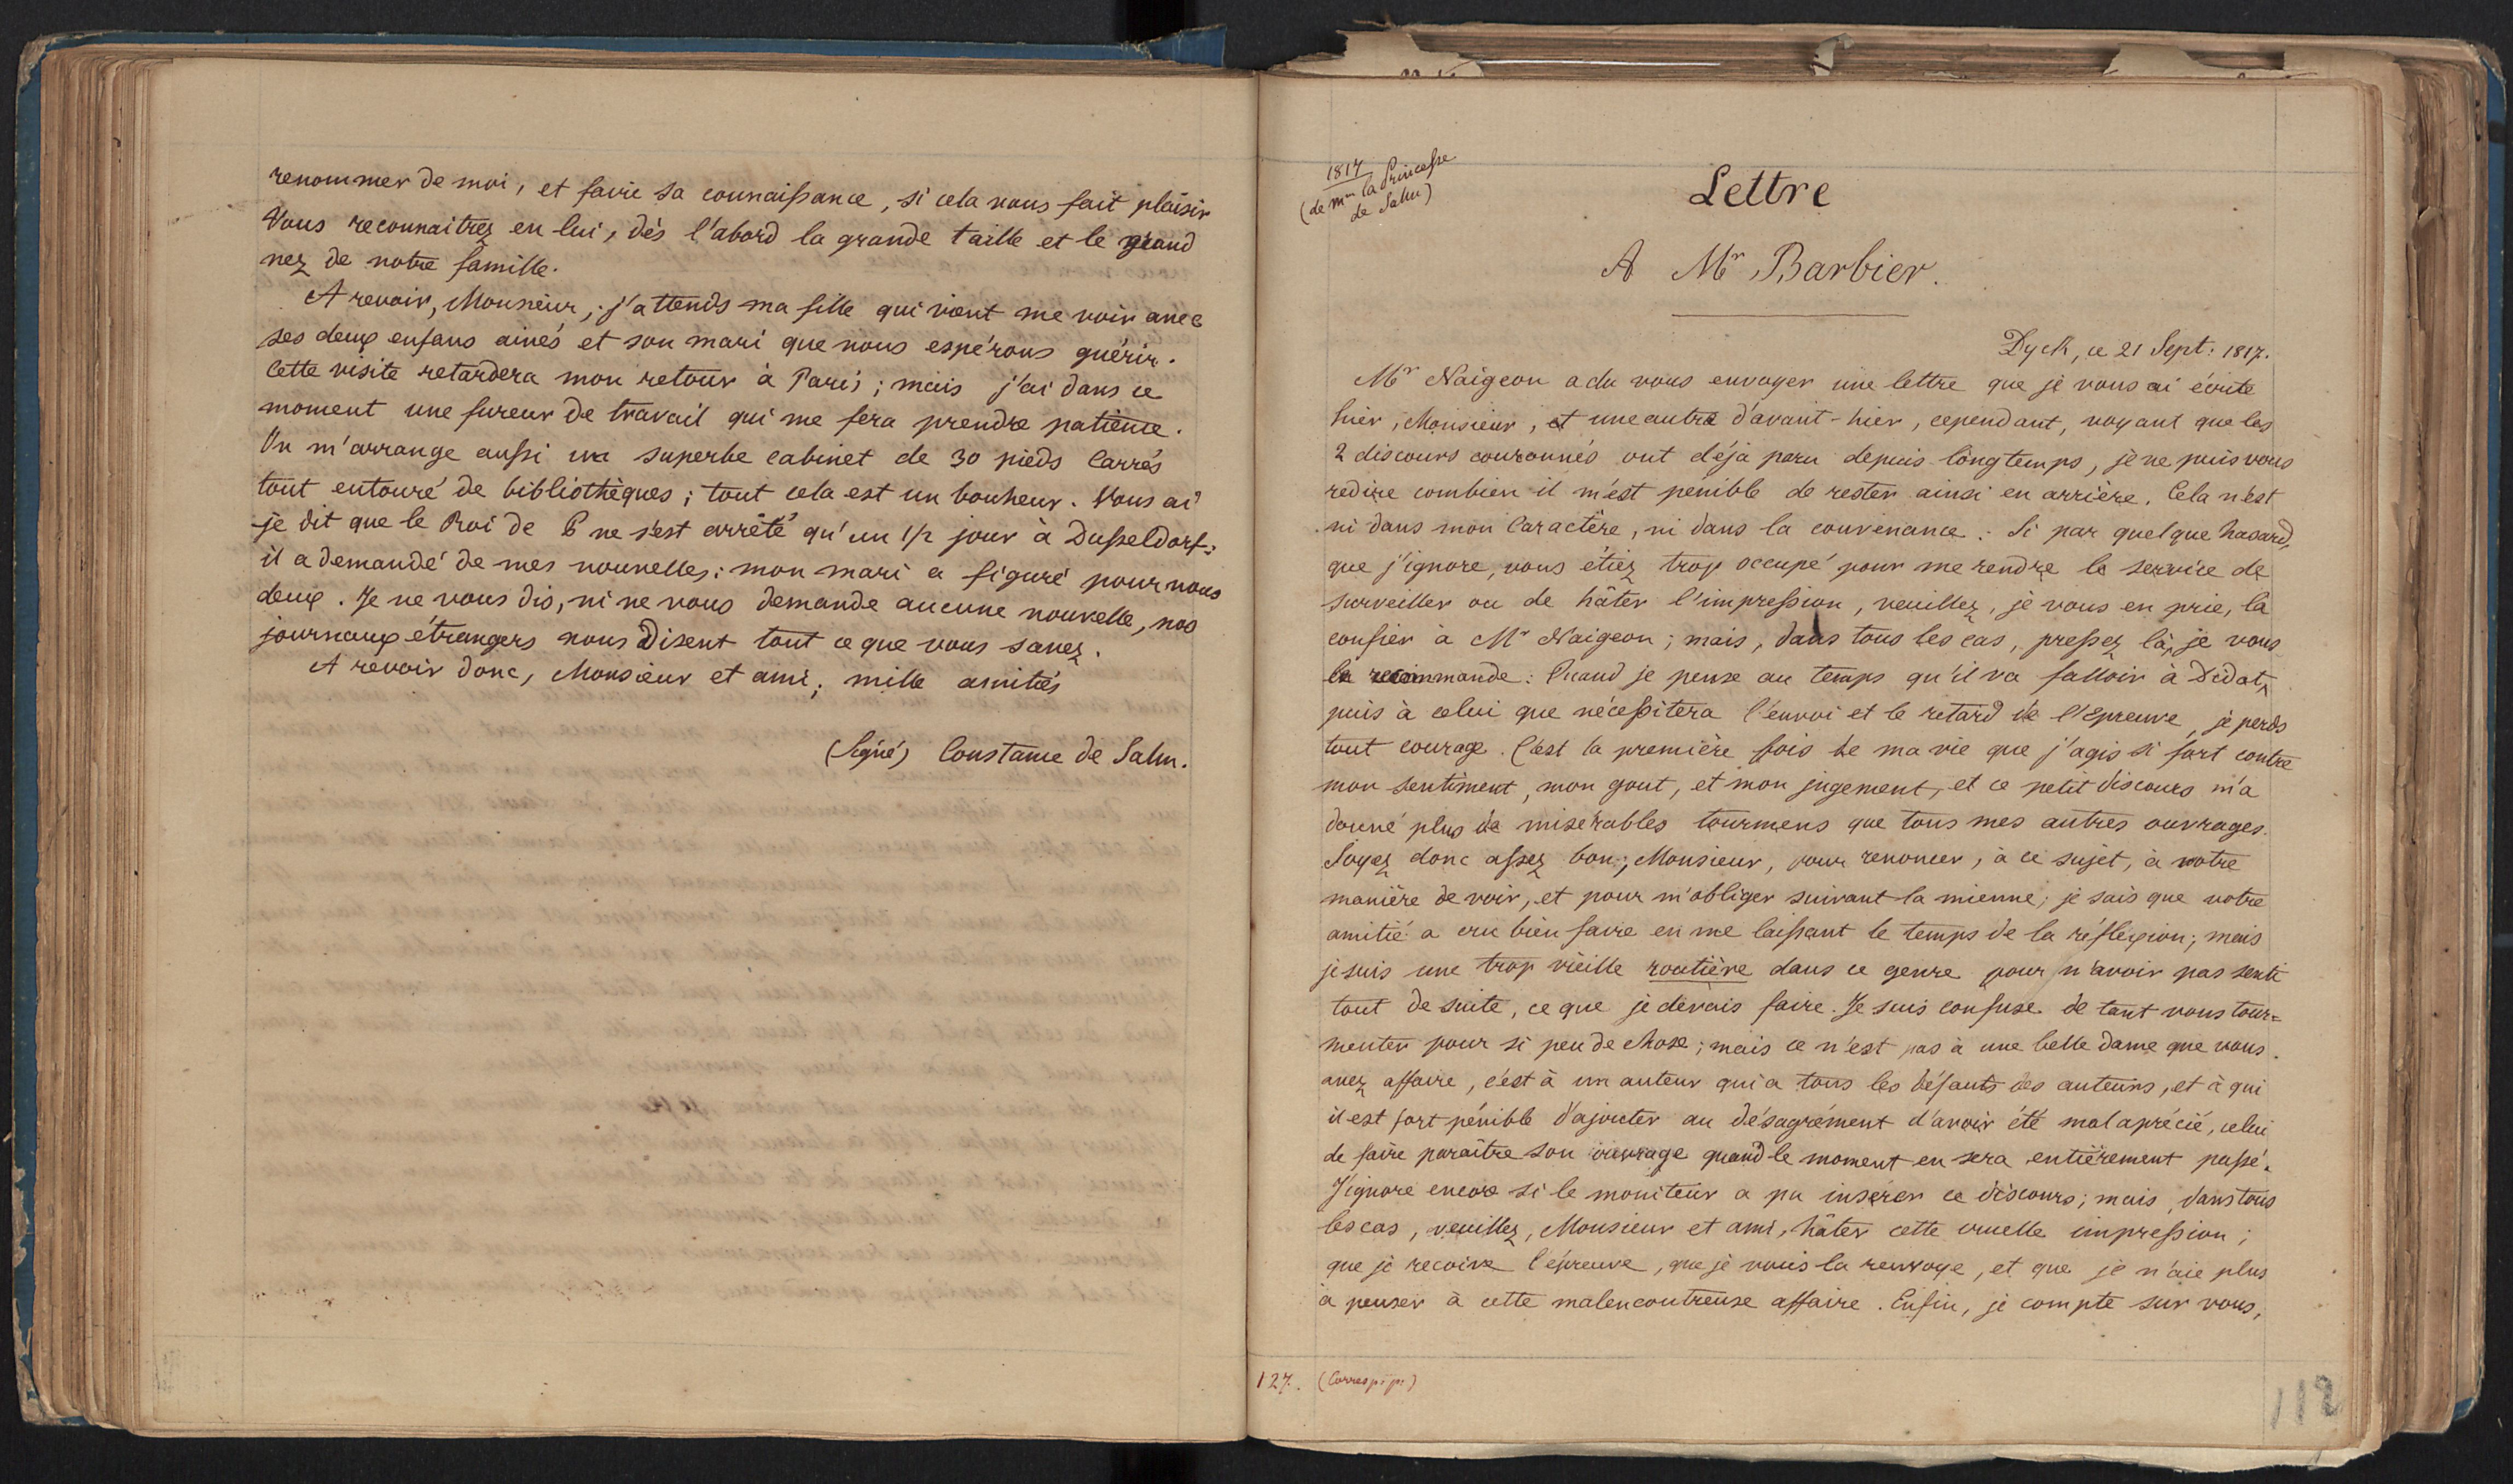 renommer de moi, et faire sa connaissance, si cela vous fait plaisir
Vous reconnaitrez en lui, dès l'abord la grande taille et le grand
nez de notre famille.
A revoir, Monsieur, j'attends ma fille qui vient me voir avec
ses deux enfans ainés et son mari que nous espérons guérir.
Cette visite retardera mon retour à Paris; mais j'ai dans ce
moment une fureur de travail qui me fera prendre patience.
On m'arrange aussi un superbe cabinet de 30 pieds Carrés
tout entouré de bibliothèques; tout cela est un bonheur. Vous ai
-je dit que le Roi de P ne s'est arrêté qu'un 1/2 jour à Dusseldorf;
il a demandé de mes nouvelles: mon mari a figuré pour nous
deux. Je ne vous dis, ni ne vous demande aucune nouvelle, nos
journaux étrangers nous Disent tout ce que vous savez.
A revoir donc, Monsieur et ami; mille amitiés
(Signé) Constance de Salm.
1817
(de Mme la Princesse
de Salm)
Lettre
A Mr Barbier.
Dyck, ce 21 Sept: 1817.
Mr Naigeon a du vous envoyer une lettre que je vous ai écrite
hier, Monsieur, et une autre d'avant-hier, cependant, voyant que les
2 discours couronnés ont déja paru depuis longtemps, je ne puis vous
redire combien il m'est pénible de rester ainsi en arrière. Cela n'est
ni dans mon Caractère, ni dans la convenance. Si par quelque hasard,
que j'ignore, vous étiez trop occupé pour me rendre le service de
surveiller ou de hâter l'impression, veuillez, je vous en prie, la
confier à Mr Naigeon; mais, dans tous les cas, pressez là, je vous
le recommande: Quand je pense au temps qu'il va falloir à Didot,
puis à celui que nécessitera l'envoi et le retard de l'Epreuve, je perds
tout courage. C'est la première fois de ma vie que j'agis si fort contre
mon sentiment, mon gout, et mon jugement, et ce petit discours m'a
donné plus de misérables tourmens que tous mes autres ouvrages.
Soyez donc assez bon, Monsieur, pour renoncer, à ce sujet, à votre
manière de voir, et pour m'obliger suivant la mienne; je sais que votre
amitié a cru bien faire en me laissant le temps de la réflexion; mais
je suis une trop vieille routière dans ce genre pour n'avoir pas senti
tout de suite, ce que je devais faire. Je suis confuse de tant vous tour=
menter pour si peu de chose; mais ce n'est pas à une belle dame que vous
avez affaire, c'est à un auteur qui a tous les défauts des auteurs, et à qui
il est fort pénible d'ajouter au désagrément d'avoir été mal aprécié, celui
de faire paraître son ouvrage quand le moment en sera entièrement passé.
J'ignore encore si le moniteur a pu insérer ce discours; mais, dans tous
les cas, veuillez, Monsieur et ami, hâter cette cruelle impression;
que je reçoive l'épreuve, que je vous la renvoye, et que je n'aie plus
à penser à cette malencontreuse affaire. Enfin, je compte sur vous,
127. (Corresp: p:)
112